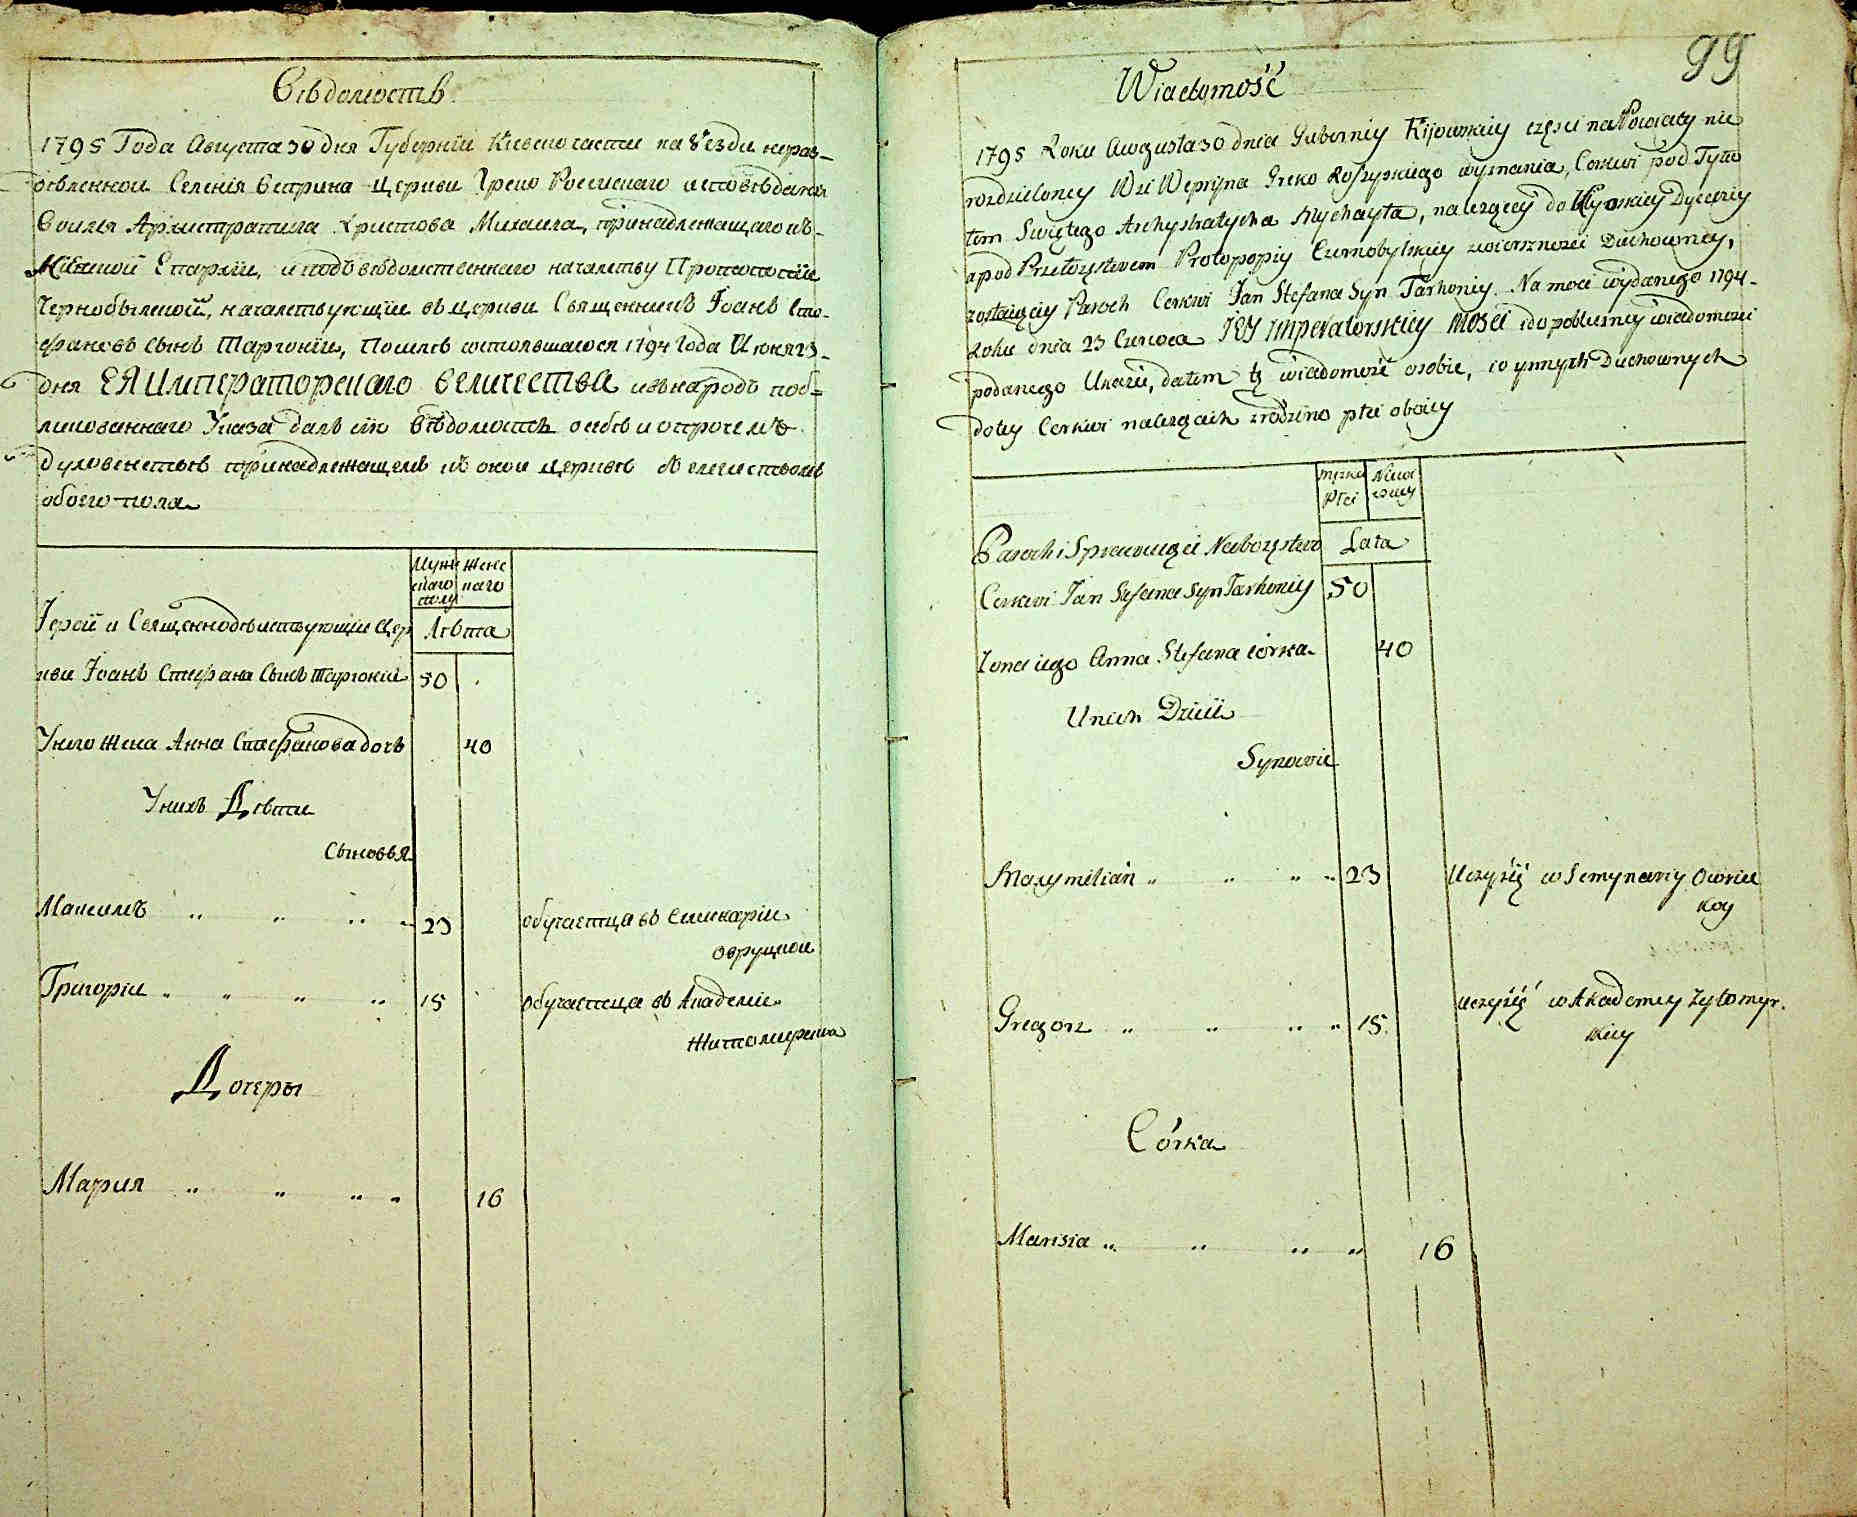 Вѣдомость
1795 Года Августа 30 дня Губернїи Кіевско части на Уезди нераз-
дѣленной Селенія Веприна Церкви Греко Россїискаго исповѣданія
Воимя Архистратига Христова Михаила, принадлежащаго къ-
Епархіи, и подъ вѣдомственнаго началству Протопопїи
Чернобылской, началствующїи въ церкви Священникъ Іоанъ Сте-
фановъ сынъ Таргонїи, Посилѣ состоявшагося 1794 Года Июня 23-
дня ЕЯ Императорскаго Величества изънародъ поб-
ликованнаго Указа далъ сїю Вѣдомость о себѣ и опрочемъ
Духовенствѣ принадлежащемъ къ оной церквѣ
обоего пола
Мужескаго полу
Женскаго
Іерей и Священнодѣиствующїи Цер
Лѣта
кви Іоанъ Стефана Сынъ Таргонїи 50
Унего Жена Анна Стефанова дочь 40
Унихъ Дѣти
Сыновья
Максимъ 23 обучаетца въ Семинарїи
овруцкои
Григорїи 15 обучаетца въ Академїи
Житомирска
Дочеры
Мария 16
99
Wiadomość
1795 Roku Awgusta 30 dnia Gubernij Kijowskiey części na Powiaty nie
rozdzieloney Wsi Wepryna Greko Roszyskiego wyznania, Cerkwi pod Tytu
łem Swiętego Archystratycha Mychayła, należącey do Kijowskiey Dyecezij
a pod Przełożęstwem Protopopij Czernobylskiey zwierzności Duchowney,
zostaiąciy Paroch Cerkwi Jan Stefana Syn Tarhonij. Na moci wydanego 1794-
Roku dnia 23 Czerwca JEY Imperatorskiey Mości i do publiczney wiadomości
podanego Ukazu, dałem tę wiadomość o sobie, i o ynnych Duchownych
do tey Cerkwi należących z rodziną płci oboiey
męzka Płci
Niewieściey
Paroch i Sprawuiący Nabozęstwo Lata
Cerkwi Jan Stefana Syn Tarhonij 50
Zona iego Anna Stefana córka 40
U nich Dzieci
Synowie
Maxymilian 23 Uczyśię w Semynariy Owruc
koy
Gregorz 15 uczyśię w Akademij Zytomyr.
skiey
Córka
Marisia 16